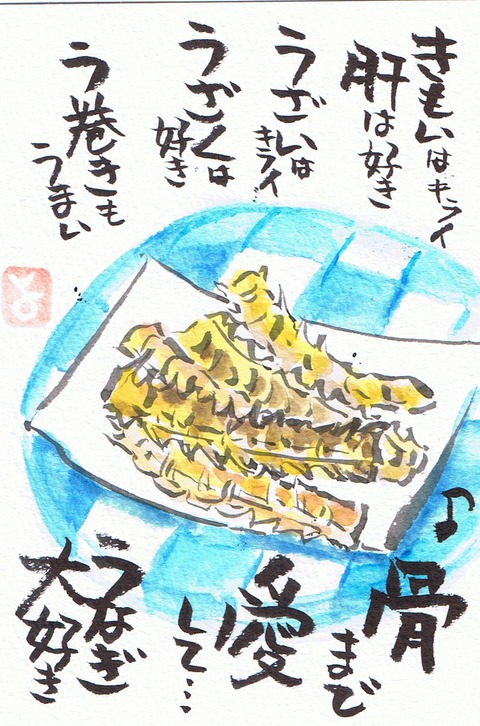 きもいはキライ
肝は好き
うざいは
キライ…
うざくは
好き
う巻きも
うまい
♪骨まで
愛
して…
うなぎ
大好き